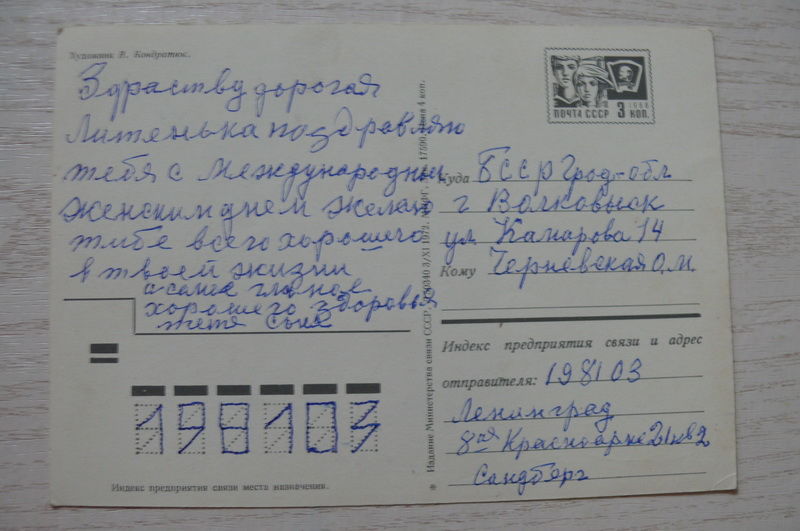 Художник В. Кондратюк.
Здраству дорогая
поздравляю
тебя с Международным
женским днем желаю
тибе всего хорошего
в твоей жизни
а самое главное
хорошего здоровья
тетя Соня
198103
Индекс предприятия связи места назначения.
Издание Министерства связи СССР. 3/XI 1972. Цена 4 коп.
ПОЧТА СССР 3 КОП.
1966
Куда БССР Грод-обл
г Волковыск
ул Жанарова 14
Кому Черневская О.М.
Индекс предприятия связи и адрес
отправителя: 198103
Ленинград
8ая Красноарме 21 кв 2
Сандберг